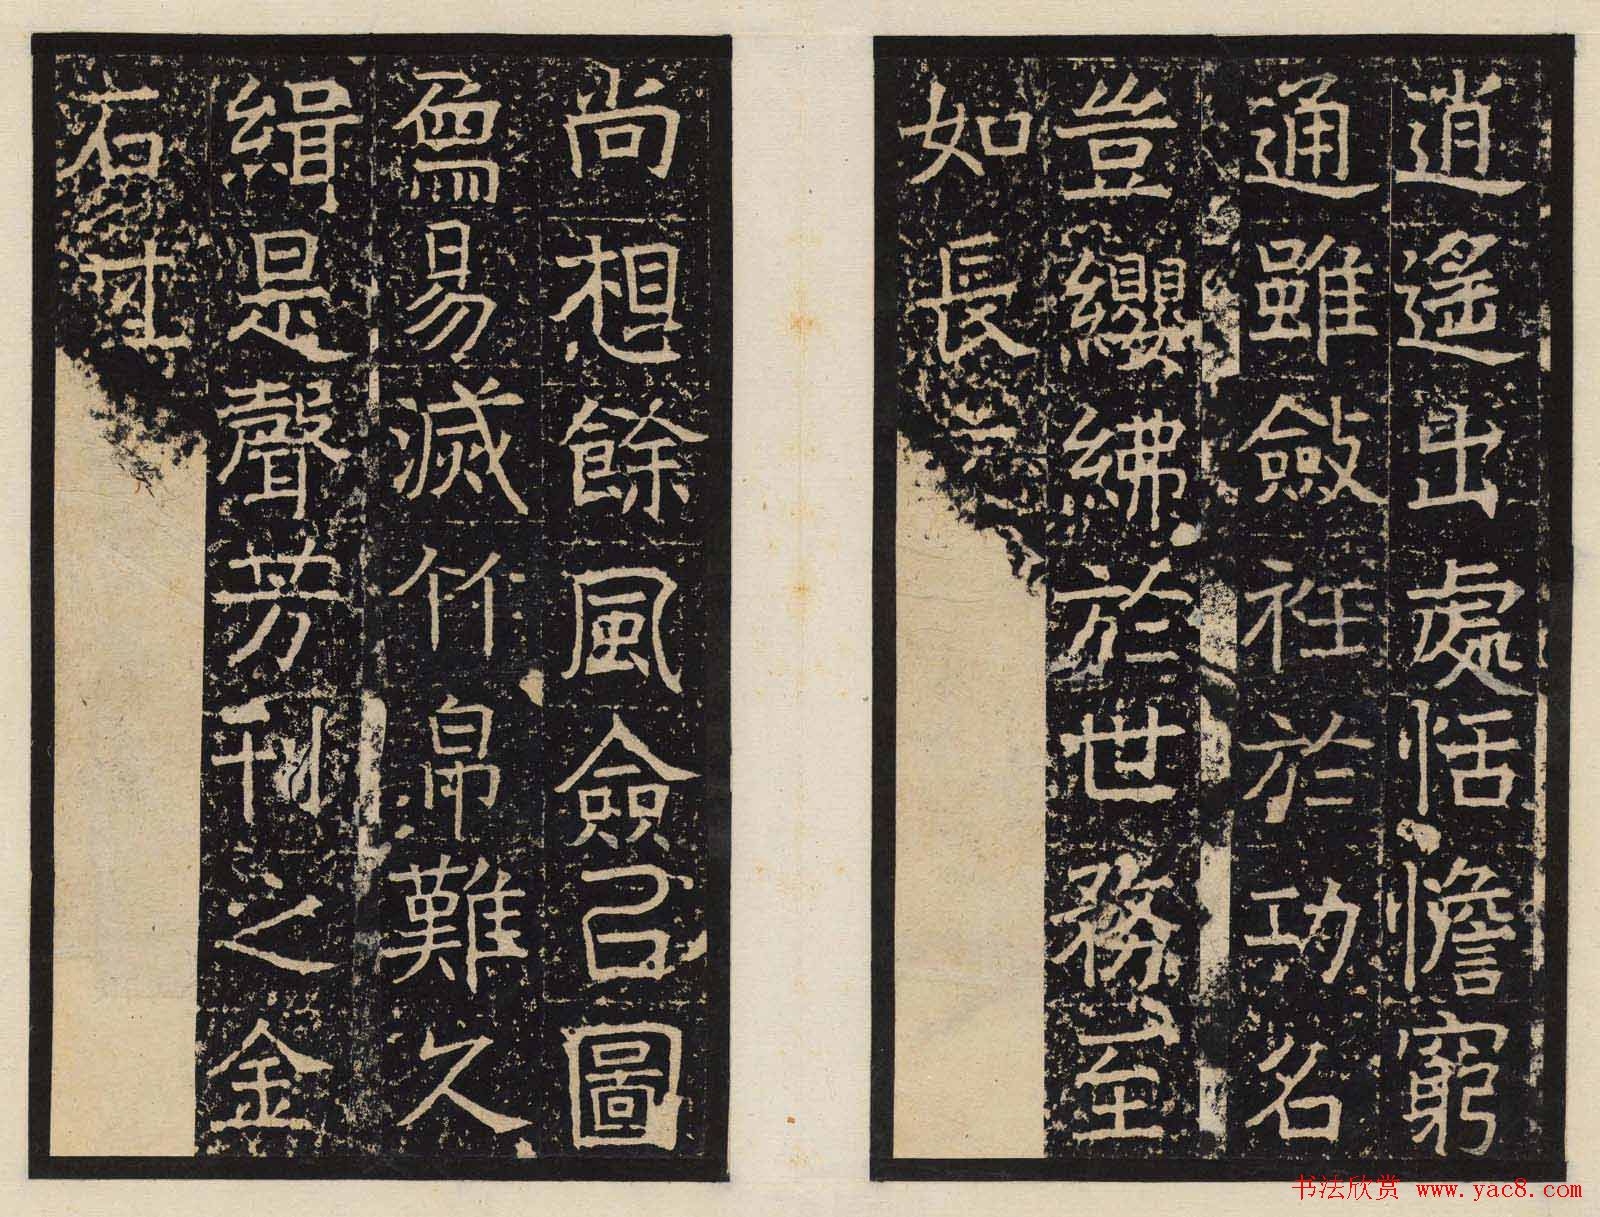 逍遙出處恬憺窮
通雖斂衽於功名
豈纓紼於世務至
如長
尚想餘風僉以圖
易滅竹帛難久
緝是聲芳刊之金
石其
书法欣赏 www.yac8.com